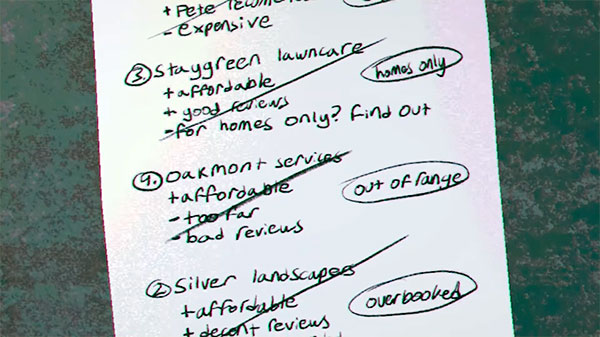 + Pete
- expensive
③ Staygreen lawncare
homes only
+ affordable
+ good reviews
- for homes only? Find Out
④. Oakmont services
+ affordable
out of range
- too far
- bad reviews
② Silver landscapes
overbooked
+ affordable
+ decent reviews